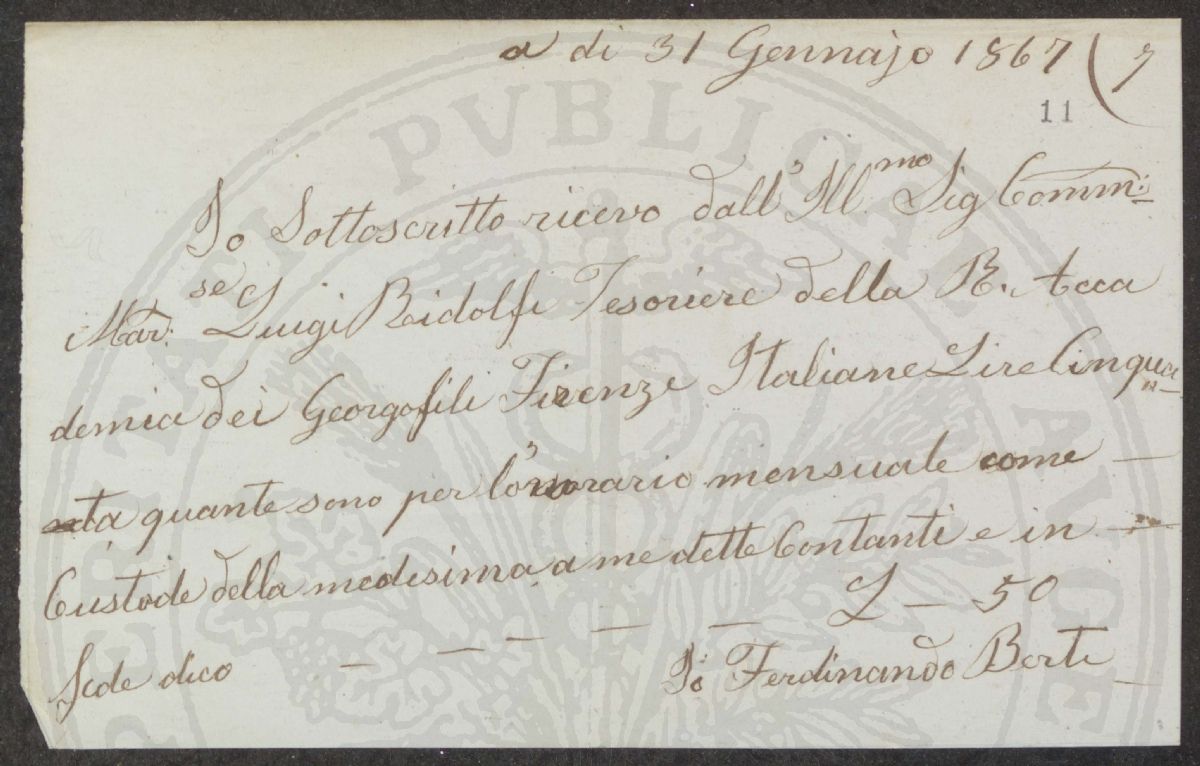 a di 31 Gennajo 1867 (7
11
Io Sottoscritto ricevo dall' Ill.mo Sig Comm:
Mar:se Luigi Ridolfi Tesoriere della R. Acca
demia dei Georgofili Firenze Italiane Lire Cinqua
ta quante sono per l'onorario mensuale come —
Custode della medesima, a me dette Contanti e in —
Fede dico — — — — — L — 50
Io Ferdinando Berti —